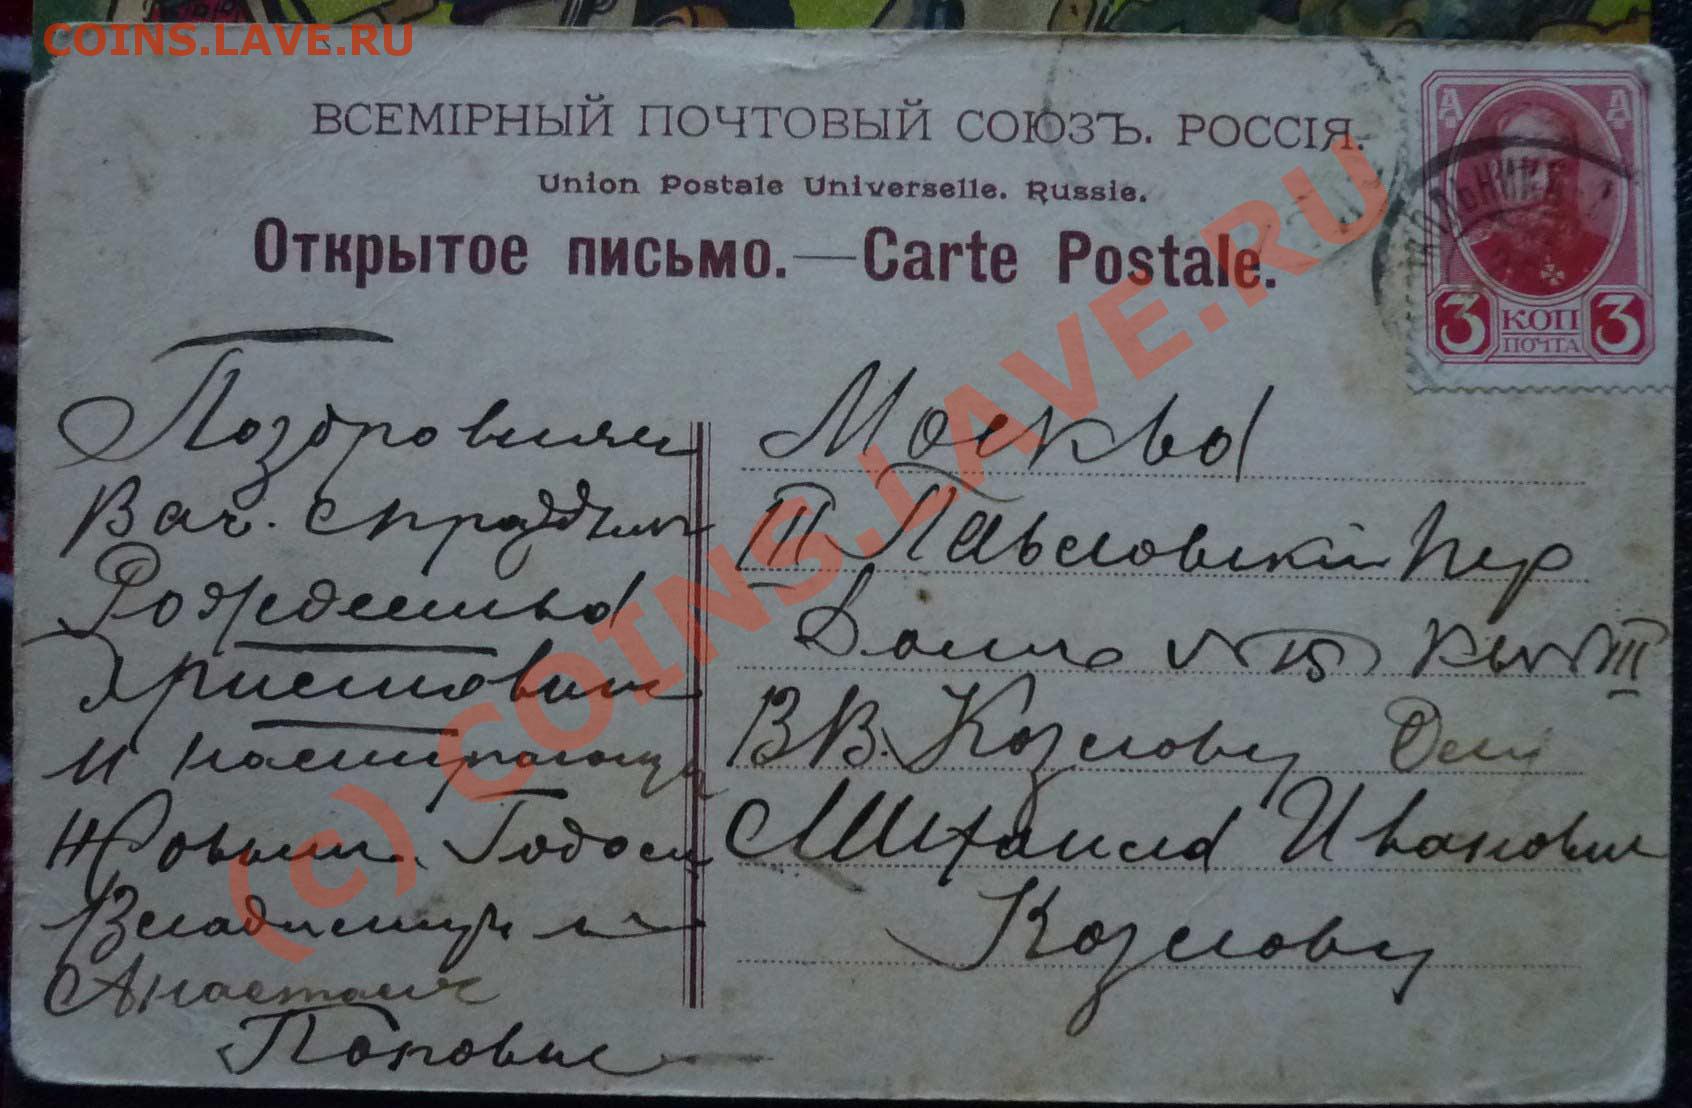 COINS.LAVE.RU
ВСЕМІРНЫЙ ПОЧТОВЫЙ СОЮЗЪ. РОССІЯ.
Union Postale Universelle. Russie.
Открытое письмо.—Carte Postale.
А Д
3 КОП 3
ПОЧТА
Поздровляем
Вас. с праздником
Рождества
Христовим
и наступающ
Новым Годом
Владимир и
Анастасия
Поповы
Москва
III Павловский пер
Дом № 15 кв № III
ВВ. Козлову Для
Михаила Ивановича
Козлову
(c) COINS.LAVE.RU